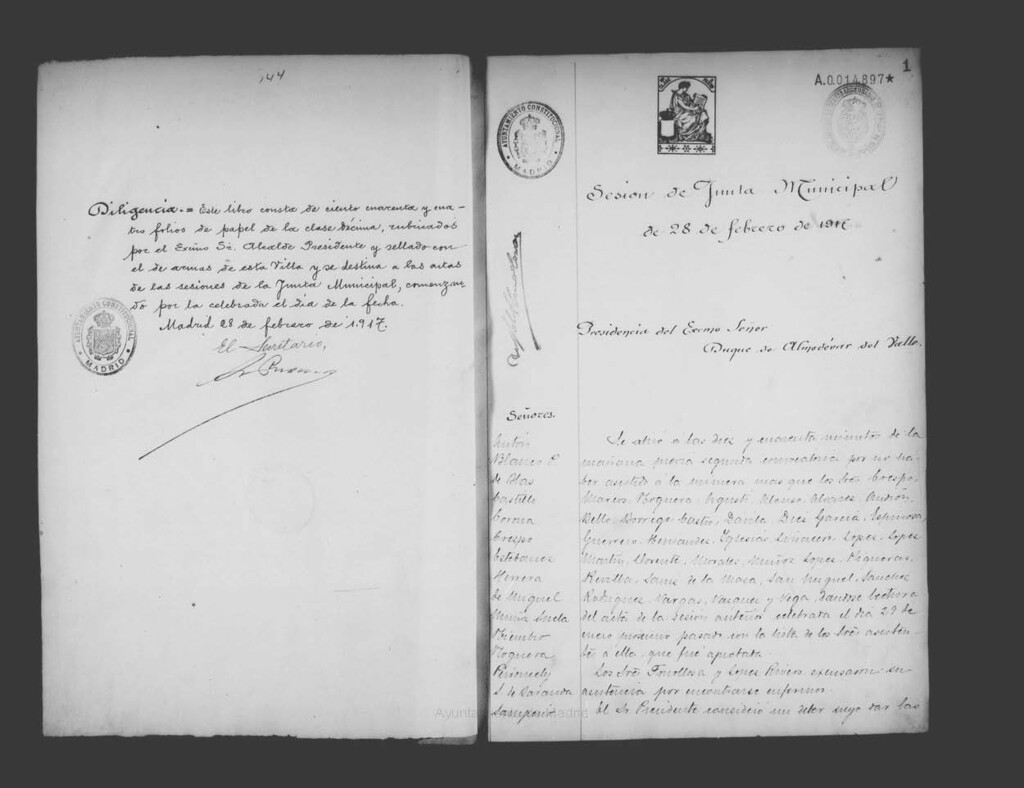 144
Diligencia.= Este libro consta de ciento cuarenta y cua-
tro folios de papel de la clase décima, rubricados
por el Excmo Sr. Alcalde Presidente y sellado con
el de armas de esta Villa y se destina a las actas
de las sesiones de la Junta Municipal, comenzan-
do por la celebrada el día de la fecha.
Madrid 28 de febrero de 1.917.
El Secretario,
AYUNTAMIENTO CONSTITUCIONAL
MADRID
1
A.0.014.897★
AYUNTAMIENTO CONSTITUCIONAL
MADRID
Sesion de Junta Municipal
de 28 de febrero de 1917
Presidencia del Excmo Señor
Duque de Almodóvar del Valle.
Señores.
Antón
Blanco P.
de Blas
Castillo
Corona
Crespo
Estébanez
Herrera
de Miguel
Noguera
S. de Saranda
Se abrió a las diez y cuarenta minutos de la
mañana previa segunda convocatoria por no ha-
ber asistido á la primera mas que los Sres Crespo,
Marcos, Noguera, Agustí, Alonso, Alvarez,
Bello, Borrego, Castro, Díez, García, Espinosa,
Guerrero, Hernandez, Iglesias, Lopez, Lopez
Martin, Llorente, Morales, Muñoz, Lopez, Figueras,
Revilla, Sanz de la Maza, San Miguel, Sanchez
Rodriguez, Vargas, Vazquez y Vega, dandose lectura
del acta de la sesión anterior celebrada el día 29 de
enero proximo pasado con la lista de los Sres asisten-
tes á ella, que fué aprobada.
Los Sres Fonollosa y Lopez Rivero excusaron su
asistencia por encontrarse enfermos.
El Sr Presidente consideró un deber suyo dar las